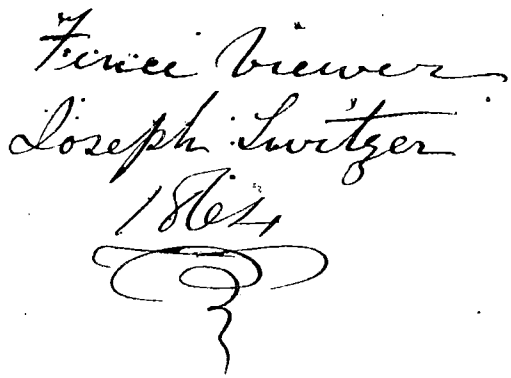 Fence Viewer
Joseph Switzer
1864